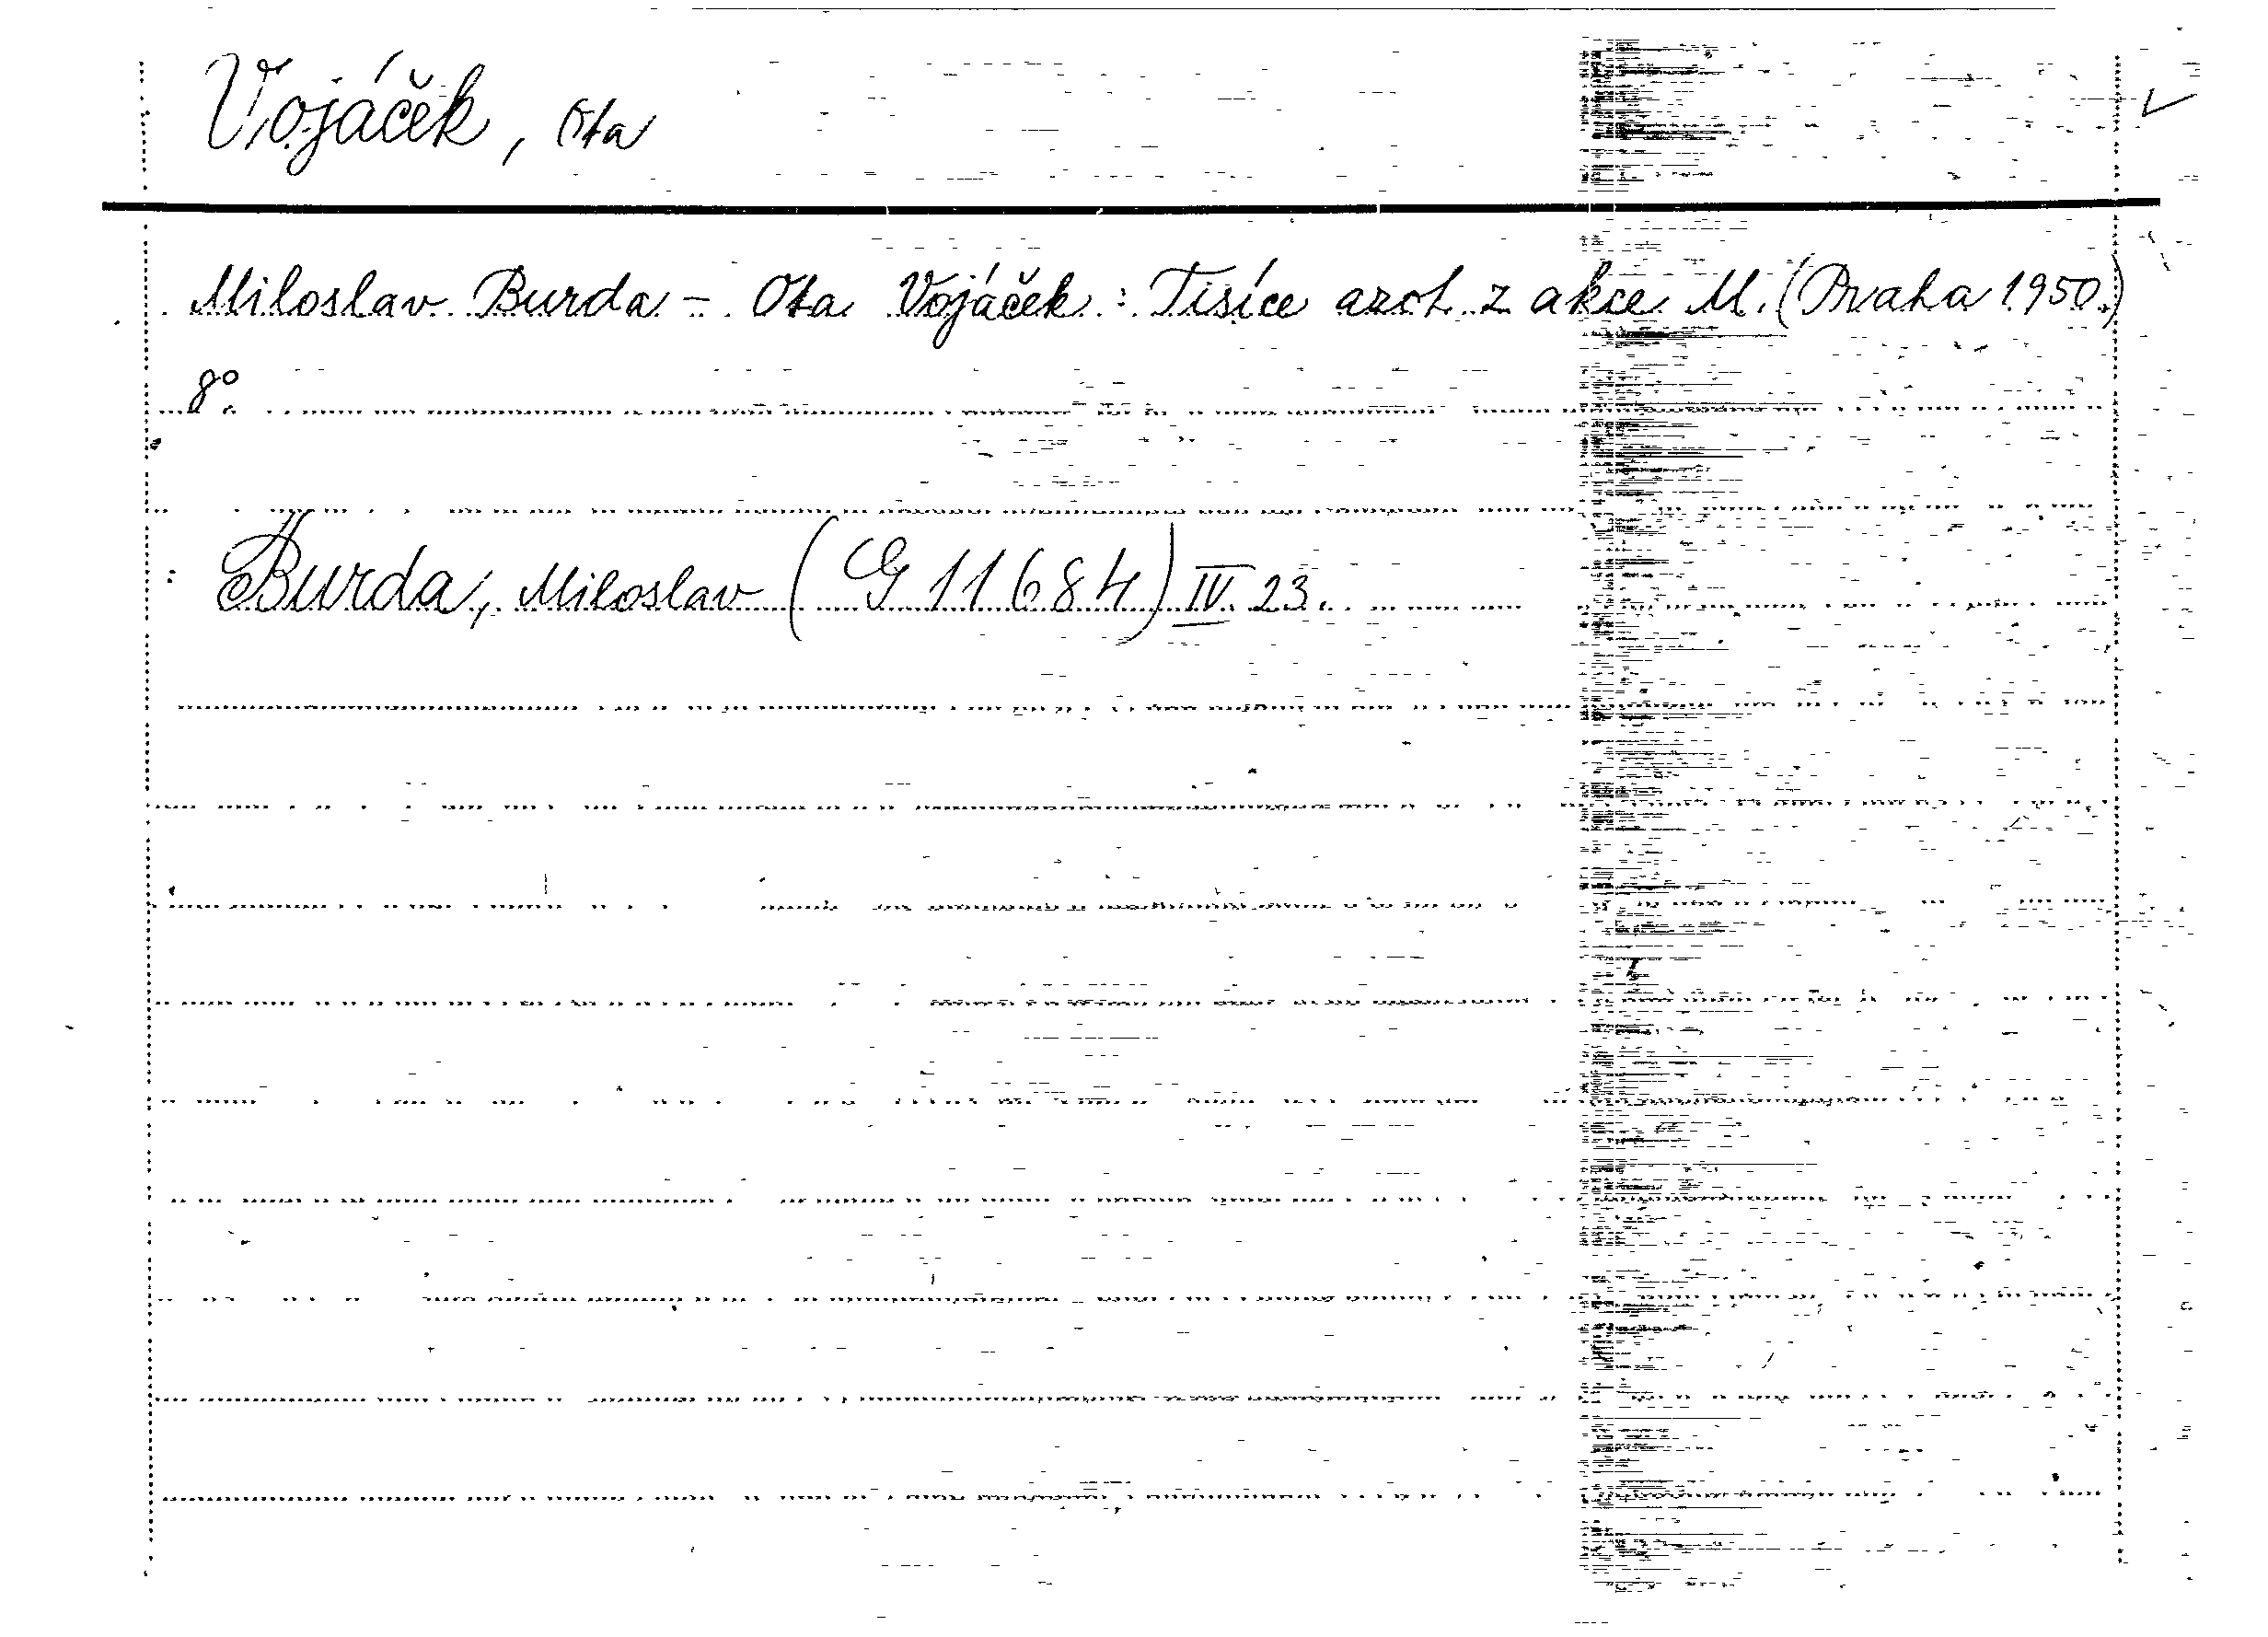 Vojáček, Ota
Miloslav Burda - Ota Vojáček: Tisíce azol z akce M. (Praha 1950.)
8°.
Burda, Miloslav (G 11684) IV. 23.